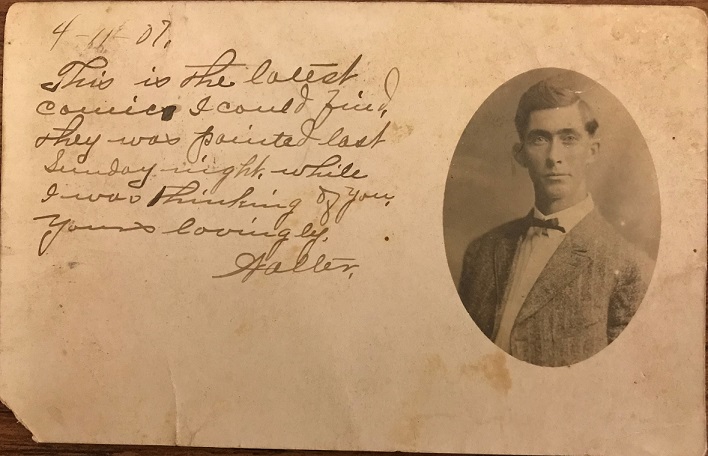 4-11-07.
This is the latest
comics I could find,
they was painted last
Sunday night, while
I was thinking of you.
Yours lovingly,
Walter.